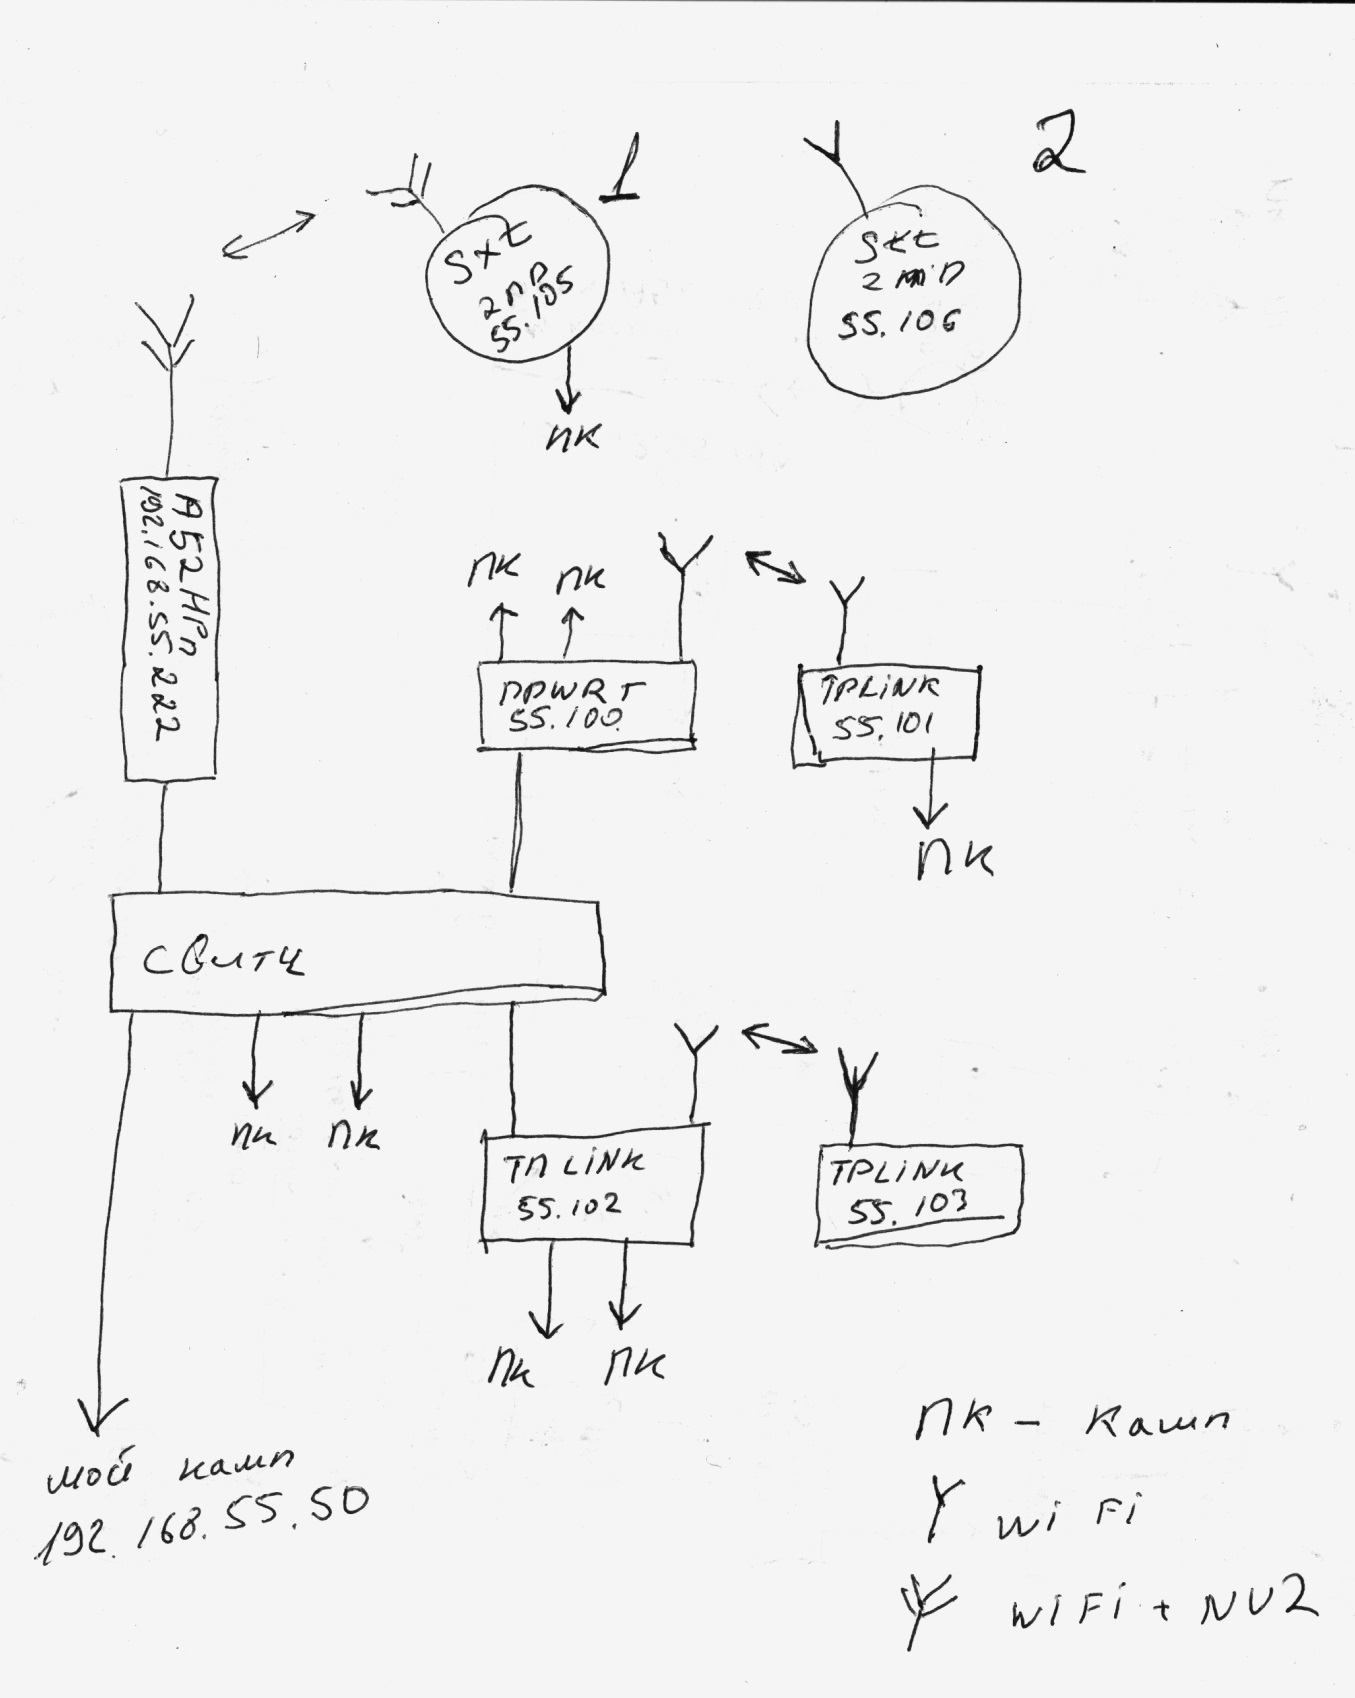 1
2
Sxt
2nD
55.105
Sxt
2 min D
55.106
ПК
А52НРп
192.168.55.222
ПК
ПК
DDWRT
55.100
TPLINK
55.101
ПК
СВИТЧ
ПК
ПК
ТПLINK
55.102
TPLINK
55.103
ПК
ПК
мой камп
192.168.55.50
ПК - камп
WiFi
WiFi + NV2